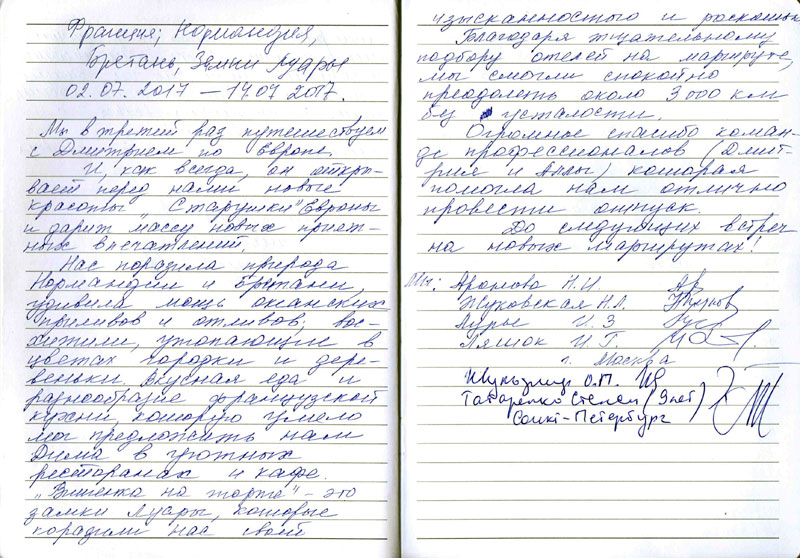 Франция, Нормандия,
Бретань, Замки Луары
02.07.2017 — 14.07 2017.
Мы в третий раз путешествуем
с Дмитрием по Европе.
И, как всегда, он откры-
вает перед нами новые
красоты „Старушки" Европы
и дарит массу новых прият-
ных впечатлений.
Нас поразила природа
Нормандии и Бретани,
удивила мощь океанских
приливов и отливов, вос-
хитили, утопающие в
цветах городки и дере-
веньки, вкусная еда и
разнообразие французской
кухни, которую умело
мог предложить нам
Дима в уютных
ресторанах и кафе.
„Вишенка на торте" - это
замки Луары, которые
поразили нас своей
изысканностью и роскошью
Благодаря тщательному
подбору отелей на маршруте,
мы смогли спокойно
преодолеть около 3000 км
без усталости.
Огромное спасибо коман-
де профессионалов (Дмит-
рия и Аллы), которая
помогла нам отлично
провести отпуск.
До следующих встреч
на новых маршрутах!
Мы: Н.И.
Жуковская Н.Л.
Лурье И.З
Ляшок И.Г.
г. Москва
О.П.
Татаренко Степан
Санкт-Петербург